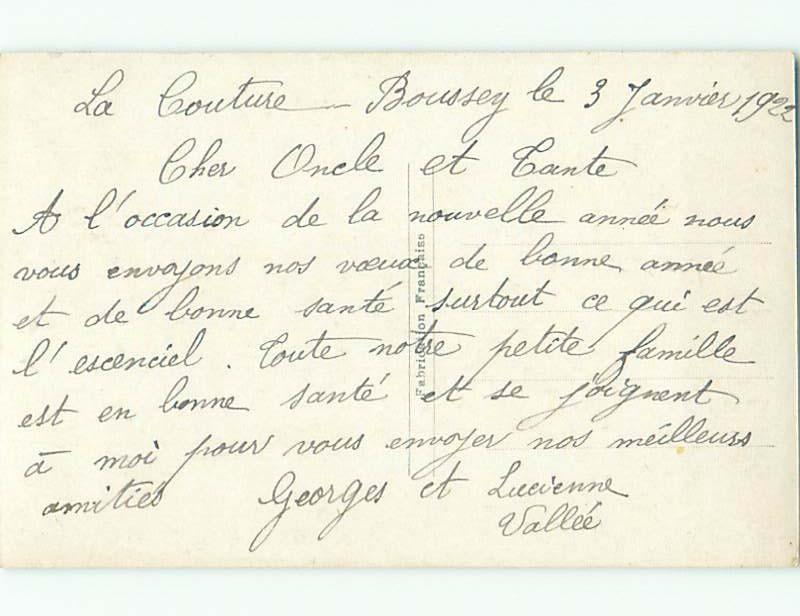 La Couture - Boussey le 3 Janvier 1922
Cher Oncle et Tante
A l'occasion de la nouvelle année nous
vous envoyons nos vœux de bonne année
et de bonne santé surtout ce qui est
l'escenciel. Toute notre petite famille
est en bonne santé et se joignent
à moi pour vous envoyer nos meilleurs
amitiés Georges et Lucienne
Vallée
Fabrication Française